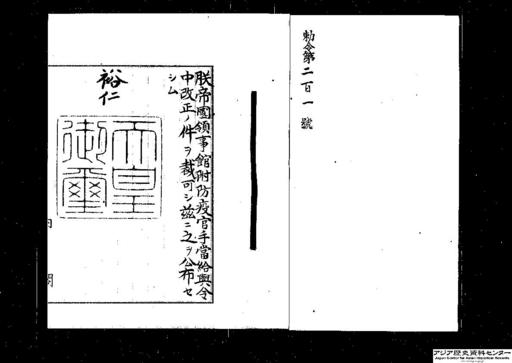 勅令第二百一號
朕帝國領事館附防疫官手當給與令
中改正ノ件ヲ裁可シ茲ニ之ヲ公布セ
シム
裕仁
天皇
御璽
内
閣
アジア歴史資料センター
Japan Center for Asian Historical Records